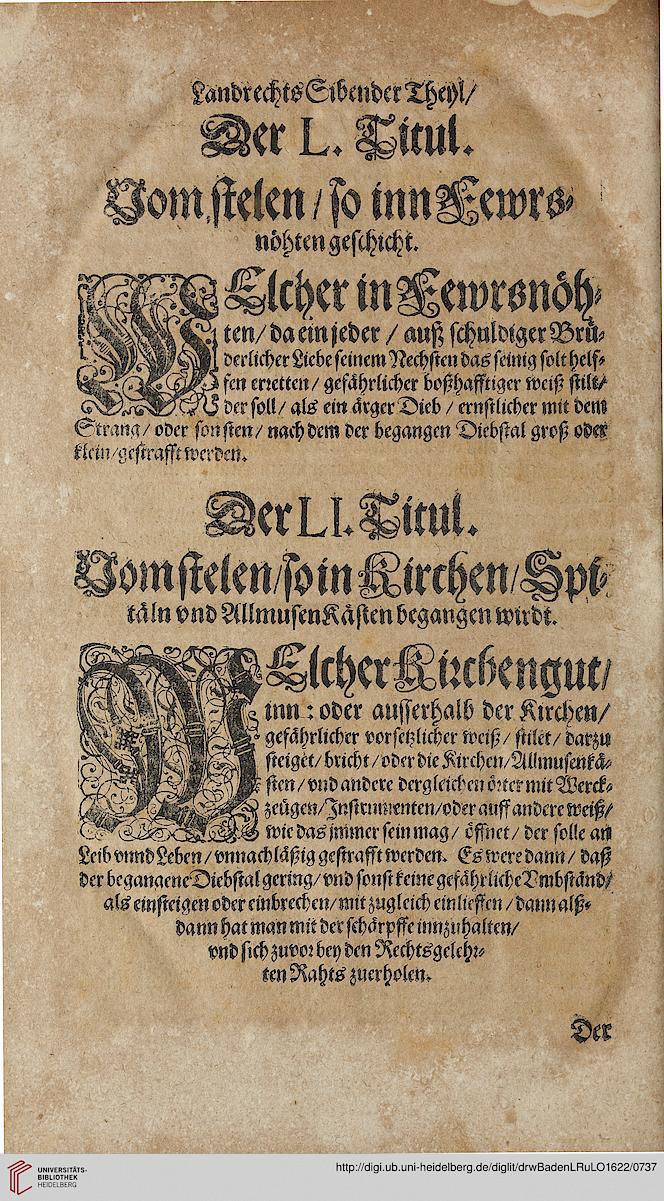 Landrechts Sibender Theyl/
Der L. Titul.
Vom stelen / so inn Fewrs-
nöhten geschicht.
WElcher in Fewrsnöh-
ten/ da ein jeder / auß schuldiger Brü-
derlicher Liebe seinem Nechsten das seinig solt helf-
fen erretten / gefährlicher boßhafftiger weiß stilt/
der soll / als ein ärger Dieb / ernstlicher mit dem
Strang / oder sonsten / nach dem der begangen Diebstal groß oder
klein/gestrafft werden.
Der LI. Titul.
Vom stelen/so in Kirchen/Spi-
täln vnd AllmusenKästen begangen wirdt.
WElcher Kirchengut/
inn : oder ausserhalb der Kirchen/
gefährlicher vorsetzlicher weiß / stilet / darzu
steiget/ bricht / oder die Kirchen/Allmusenkä-
sten / vnd andere dergleichen örter mit Werck-
zeügen/Instrumenten/oder auff andere weiß/
wie das jmmer sein mag / öffnet / der solle an
Leib vnnd Leben / vnnachläßig gestrafft werden. Es were dann / daß
der begangene Diebstal gering/ vnd sonst keine gefährliche Vmbständ/
als einsteigen oder einbrechen/ mit zugleich einlieffen / dann alß-
dann hat man mit der schärpffe innzuhalten/
vnd sich zuvor bey den Rechtsgelehr-
ten Rahts zuerholen.
Der
UNIVERSITÄTS-
BIBLIOTHEK
HEIDELBERG
http://digi.ub.uni-heidelberg.de/diglit/drwBadenLRuLO1622/0737